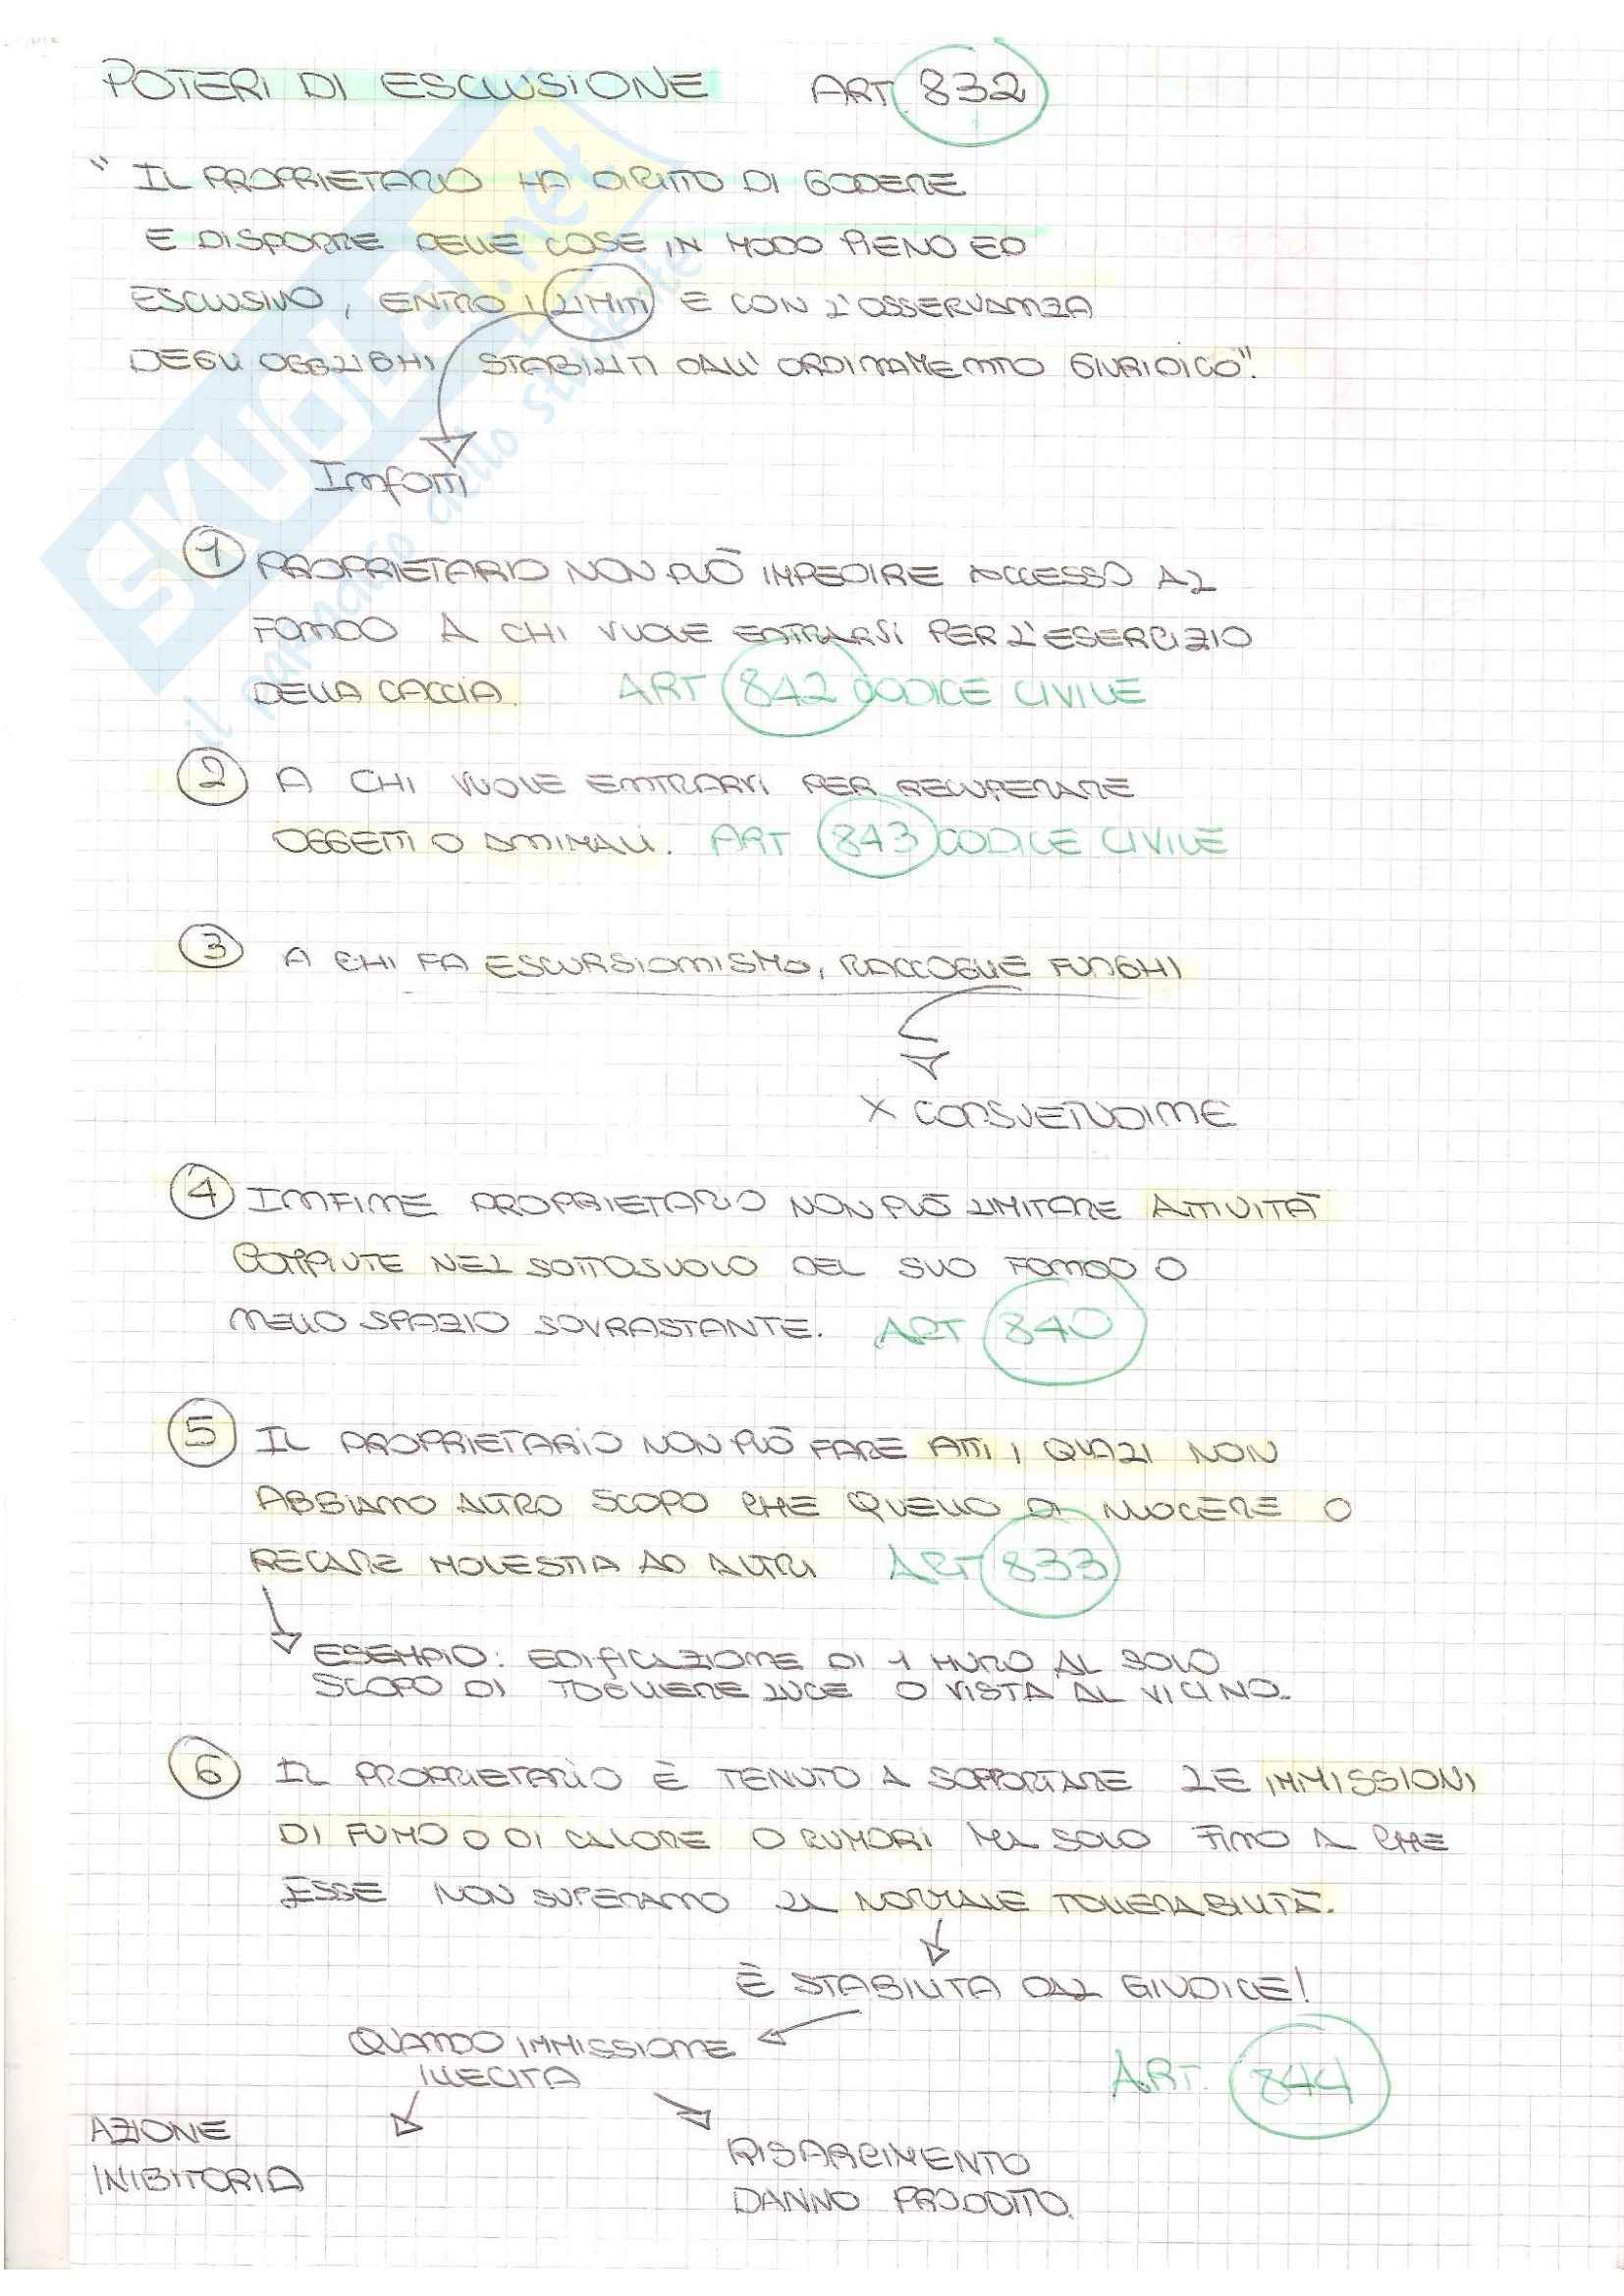 POTERI DI ESCLUSIONE ART. 832
" IL PROPRIETARIO HA DIRITTO DI GODERE
E DISPORRE DELLE COSE IN MODO PIENO ED
ESCLUSIVO, ENTRO I LIMITI E CON L'OSSERVANZA
DEGLI OBBLIGHI STABILITI DALL'ORDINAMENTO GIURIDICO".
Infatti
1 PROPRIETARIO NON PUÒ IMPEDIRE ACCESSO AL
FONDO A CHI VUOLE ENTRARSI PER L'ESERCIZIO
DELLA CACCIA. ART 842 CODICE CIVILE
2 A CHI VUOLE ENTRARVI PER RECUPERARE
OGGETTI O ANIMALI. ART 843 CODICE CIVILE
3 A CHI FA ESCURSIONISMO, RACCOGLIE FUNGHI
X CONSUETUDINE
4 INFINE PROPRIETARIO NON PUÒ LIMITARE ATTIVITÀ
COMPIUTE NEL SOTTOSUOLO DEL SUO FONDO O
NELLO SPAZIO SOVRASTANTE. ART 840
5 IL PROPRIETARIO NON PUÒ FARE ATTI I QUALI NON
ABBIANO ALTRO SCOPO CHE QUELLO DI NUOCERE O
RECARE MOLESTIA AD ALTRI ART 833
ESEMPIO: EDIFICAZIONE DI 1 MURO AL SOLO
SCOPO DI TOGLIERE LUCE O VISTA AL VICINO.
6 IL PROPRIETARIO È TENUTO A SOPPORTARE LE IMMISSIONI
DI FUMO O DI CALORE O RUMORI MA SOLO FINO A CHE
ESSE NON SUPERANO LA NORMALE TOLLERABILITÀ.
È STABILITA DAL GIUDICE!
QUANDO IMMISSIONE
ILLECITA
ART. 844
AZIONE
INIBITORIA
RISARCIMENTO
DANNO PRODOTTO.
SKUOLA.net
il paradiso dello studente